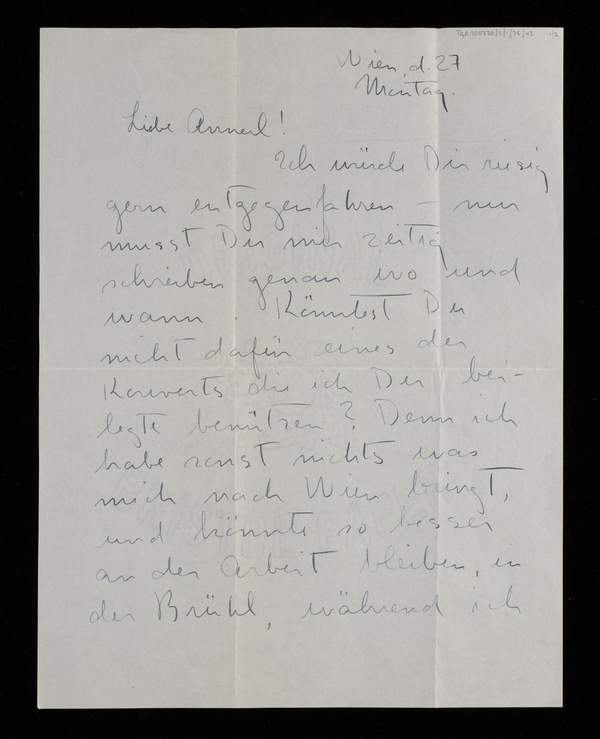 Wien, d. 27
Montag.
Liebe Annerl!
Ich würde Dir riesig
gern entgegenfahren – nur
musst Du mir zeitig
schreiben genau wo und
wann. Könntest Du
nicht dafür eines der
Kouverts die ich Dir bei-
legte benützen? Denn ich
habe sonst nichts was
mich nach Wien bringt,
und könnte so besser
an der Arbeit bleiben, in
der Brühl, während ich